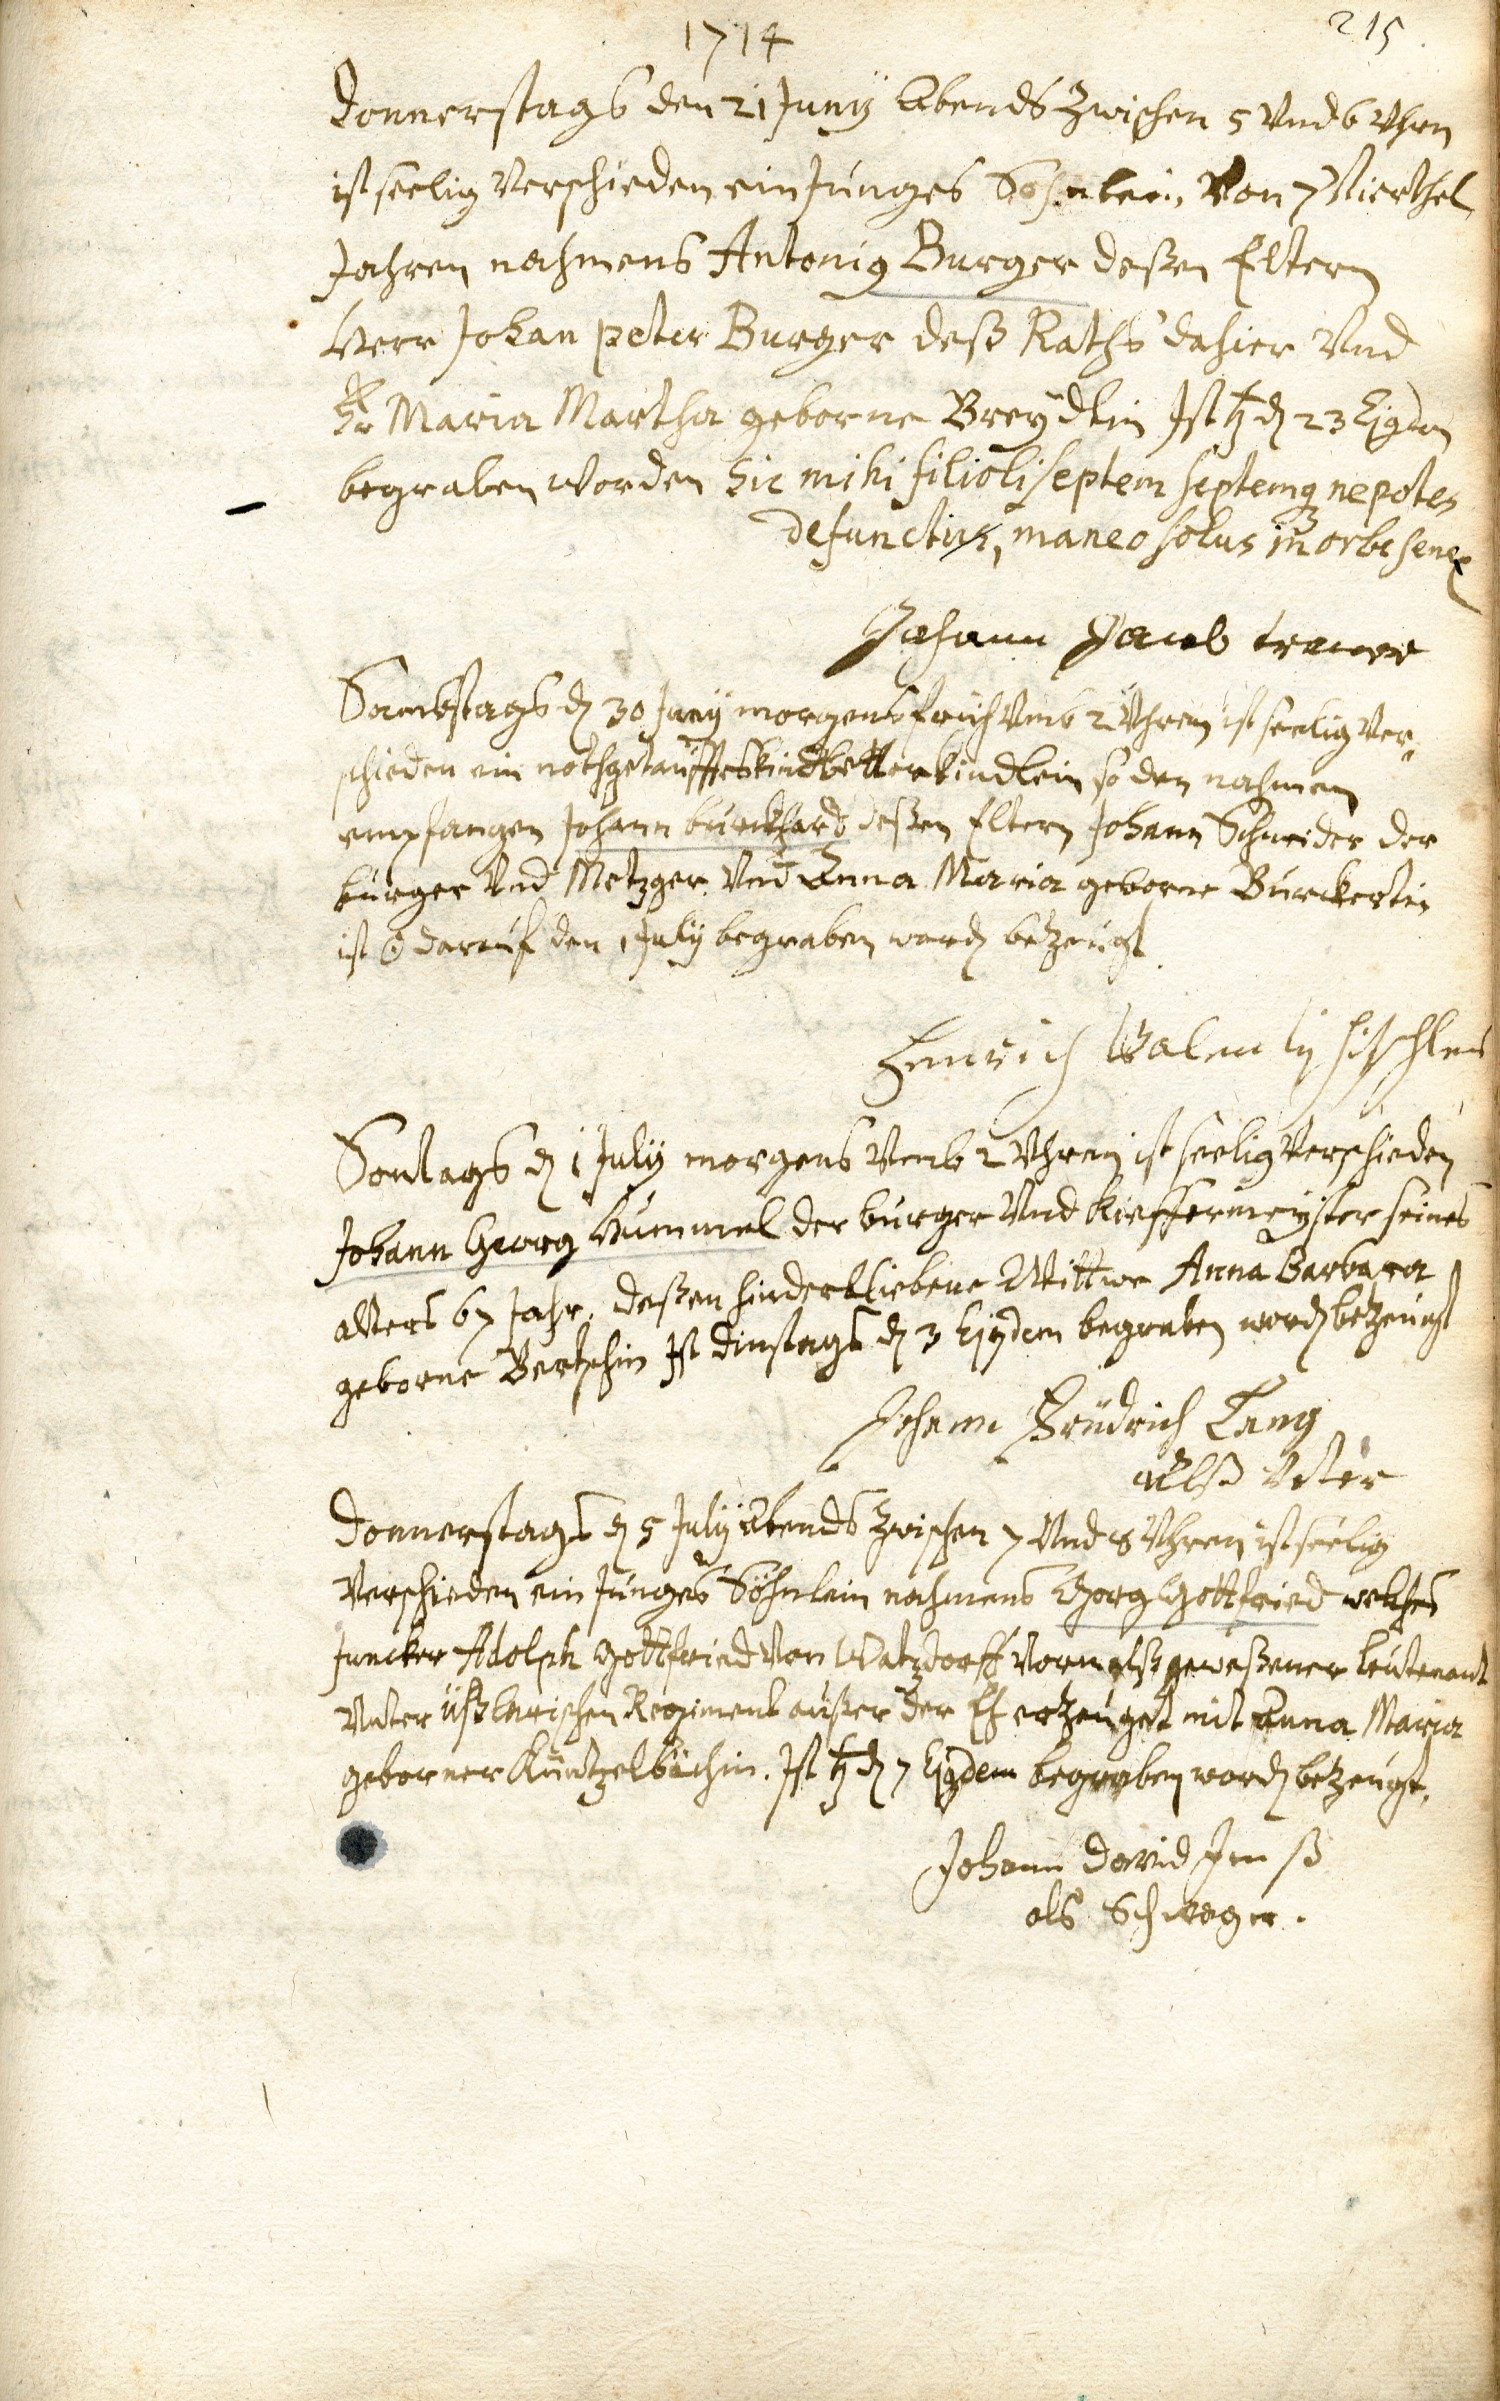 1714
215
Donnerstags den 21 Juny Abends zwischen 5 Vnd 6 Vhrn
ist seelig Verschieden ein Junges Söhnlein Von 7 Vierthel
Jahren nahmens Antonig Burger deßen Eltern
Herr Johan peter Burger deß Raths dahier Vnd
Fr Maria Martha geborne Breydlin Ist ♄ d 23 Ejgdem
begraben worden hic mihi filioli septem septemq nepotes
defunctis, maneo solus in orbe senex
Johann Jacob
Sambstags d 30 Juny morgens früh Vmb 2 Vhren ist seelig Ver-
schieden ein nothgetaufftes Kindbetterkindlein so den nahmen
empfangen Johann burckhard deßen Eltern Johann Schneider der
burger Vnd Metzger Vnd Anna Maria geborne Burckertin
ist ☉ darauf den 1 July begraben word betzeugt
Sontags d 1 July morgens Vmb 2 Vhren ist seelig Verschieden
Johann Georg Hummel der burger Vnd Kieffermeyster seines
alters 67 Jahr, deßen hinderbliebene Wittwe Anna Barbara
geborne Bertschin Ist dinstags d 3 Ejgdem begraben word betzeugt
Johann Fridrich Lang
alß Veter
Donnerstags d 5 July Abends zwischen 7 Vnd 8 Vhren ist seelig
Verschieden ein Junges Söhnlein nahmens Georg Gottfried welches
Juncker Adolph Gottfried Von Watzdorff Vormalß geweßener leutenant
Vnter Regiment außer der Eh erzeuget mit Anna Maria
geborner Kuntzelbächin. Ist ♄ d 7 Ejgdem begraben word betzeugt,
Johann David
als Schwager.